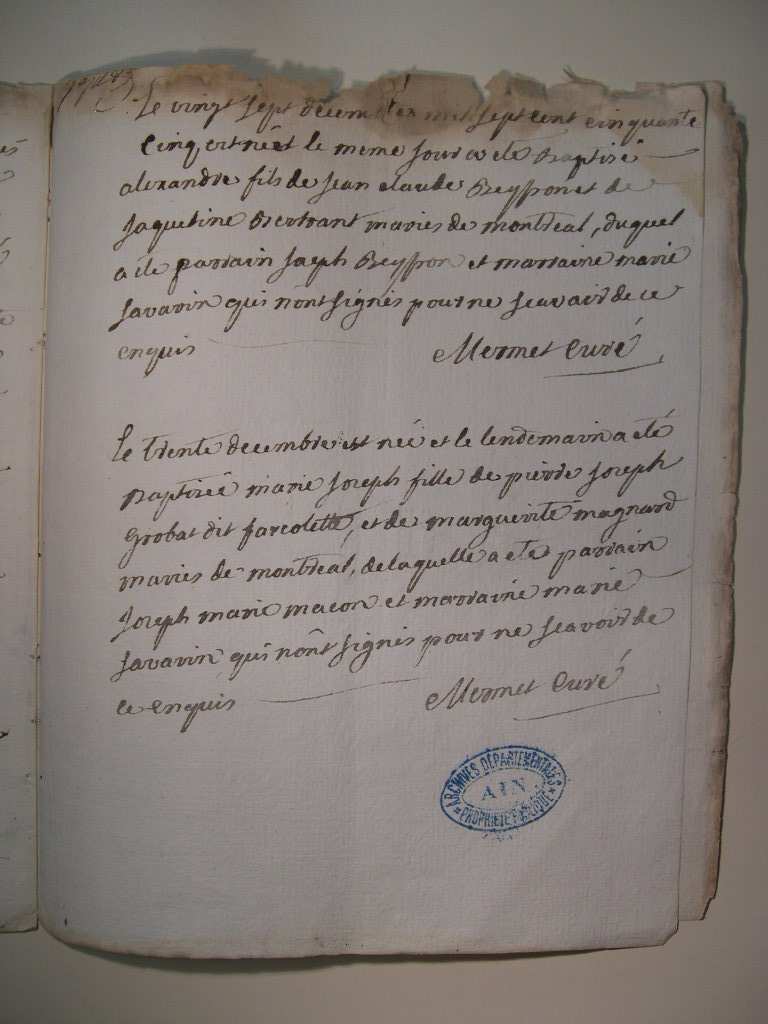 Le vingt sept decembre mil sept cent cinquante
cinq, est né et le meme jour a eté Baptisé
alexandre fils de jean claude Beysson et de
jaqueline Bertrant mariés de montreal, duquel
a ete parrain joseph Beysson et marraine marie
savarin qui n'ont signés pour ne scavoir de ce
enquis Mermet Curé
Le trente decembre est née et le lendemain a eté
Baptisée marie joseph fille de pierre joseph
Grobat dit farcolette, et de marguerite magnard
mariés de montréal, de laquelle a eté parrain
joseph marie macon et marraine marie
savarin qui n'ont signés pour ne scavoir de
ce enquis Mermet Curé
ARCHIVES DÉPARTEMENTALES
AIN
PROPRIÉTÉ PUBLIQUE